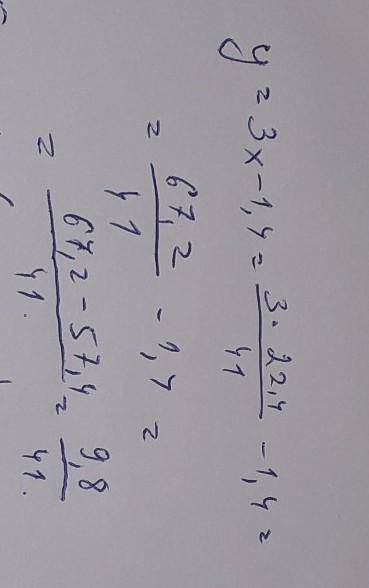 y = 3x - 1,4 = \frac{3 · 22,4}{41} - 1,4 =
= \frac{67,2}{41} - 1,4 =
= \frac{67,2 - 57,4}{41.} = \frac{9,8}{41.}